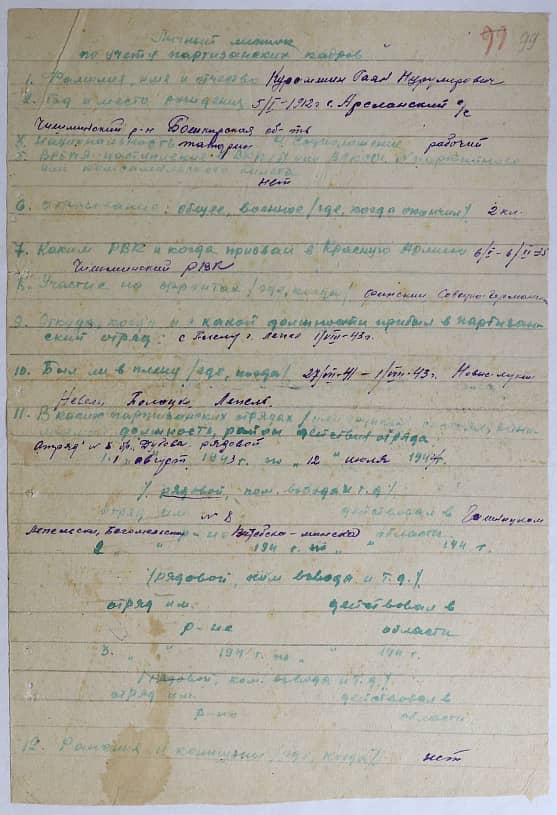 99 99
Личный листок
по учету партизанских кадров
1. Фамилия, имя и отчество Курамшин Гаян Нурумирович
2. Год и место рождения 5/I-1912 г с. Арсланский с/с
Чишминский р-н Башкирская
3. Национальность татарин 4. Соцположение рабочий
5. Время поступления в ВКП/б или ВЛКСМ, № партийного
или комсомольского билета
нет
6. Образование: общее, военное /где, когда окончил/ 2 кл.
7. Каким РВК и когда призван в Красную Армию
Чишминский РВК
8. Участие на фронтах /где, когда/ финский Советско-Германский
9. Откуда, когда и с какой должности прибыл в партизан-
ский отряд: с г. Лепель 1/VIII-43 г.
10. Был ли в плену /где, когда/ 27/VII-41 – 1/VIII-43 г.
Невель Полоцк Лепель.
11. В каких партизанских отрядах
должность, район действия отряда
отряд № 8 бр. Дубова рядовой
1. 1 "август 1943 г. по "12" июля 1944 г.
/рядовой, ком. взвода и т.д./
отряд им. № 8 действовал в
Лепельском, р-не Витебско-минской области
2. " " 194 г. по " " 194 г.
/рядовой, ком. взвода и т.д./
отряд им. действовал в
р-не области
3. " " 194 г. по " " 194 г.
/рядовой, ком. взвода и т.д./
отряд им. действовал в
р-не области
12. Ранения и контузии /где, когда/ нет